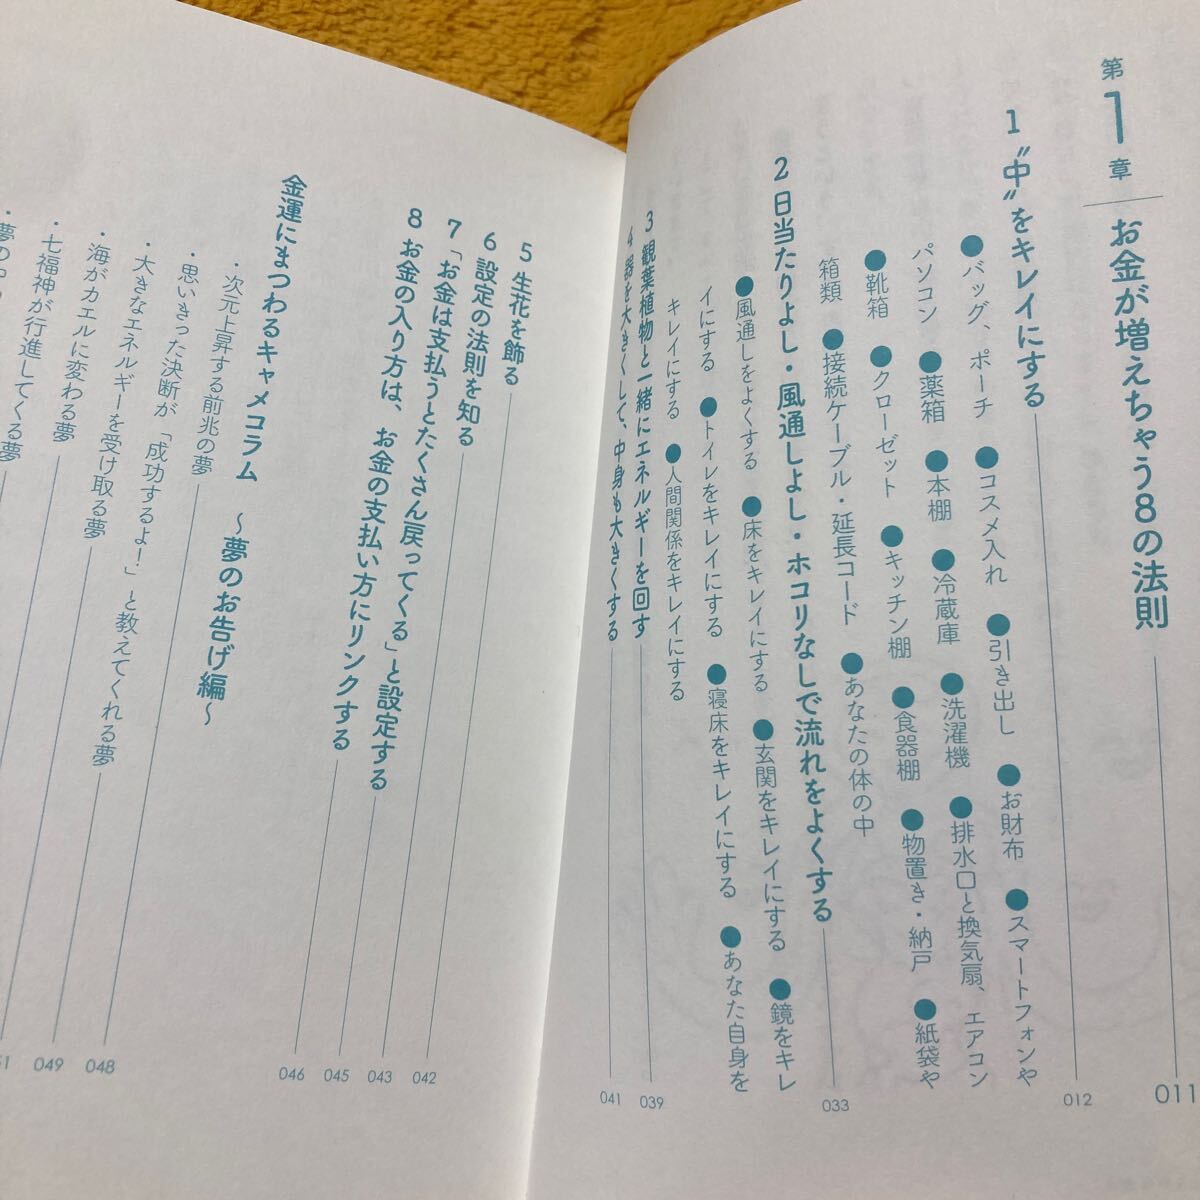 第1章 お金が増えちゃう8の法則 011
1 “中”をキレイにする 012
●バッグ、ポーチ ●コスメ入れ ●引き出し ●お財布 ●スマートフォンや
パソコン ●薬箱 ●本棚 ●冷蔵庫 ●洗濯機 ●排水口と換気扇、エアコン
●靴箱 ●クローゼット ●キッチン棚 ●食器棚 ●物置き・納戸 ●紙袋や
箱類 ●接続ケーブル・延長コード ●あなたの体の中
2 日当たりよし・風通しよし・ホコリなしで流れをよくする 033
●風通しをよくする ●床をキレイにする ●玄関をキレイにする ●鏡をキレ
イにする ●トイレをキレイにする ●寝床をキレイにする ●あなた自身を
キレイにする ●人間関係をキレイにする
3 観葉植物と一緒にエネルギーを回す 039
4 器を大きくして、中身も大きくする 041
5 生花を飾る 042
6 設定の法則を知る 043
7 「お金は支払うとたくさん戻ってくる」と設定する 045
8 お金の入り方は、お金の支払い方にリンクする 046
金運にまつわるキャメコラム 〜夢のお告げ編〜
・次元上昇する前兆の夢
・思いきった決断が「成功するよ!」と教えてくれる夢 048
・大きなエネルギーを受け取る夢 049
・海がカエルに変わる夢
・七福神が行進してくる夢